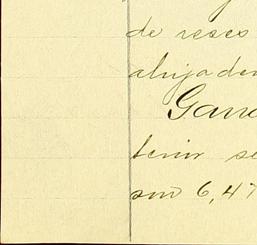 de reses
ahijaden
Gana
tenir se
son 6,47